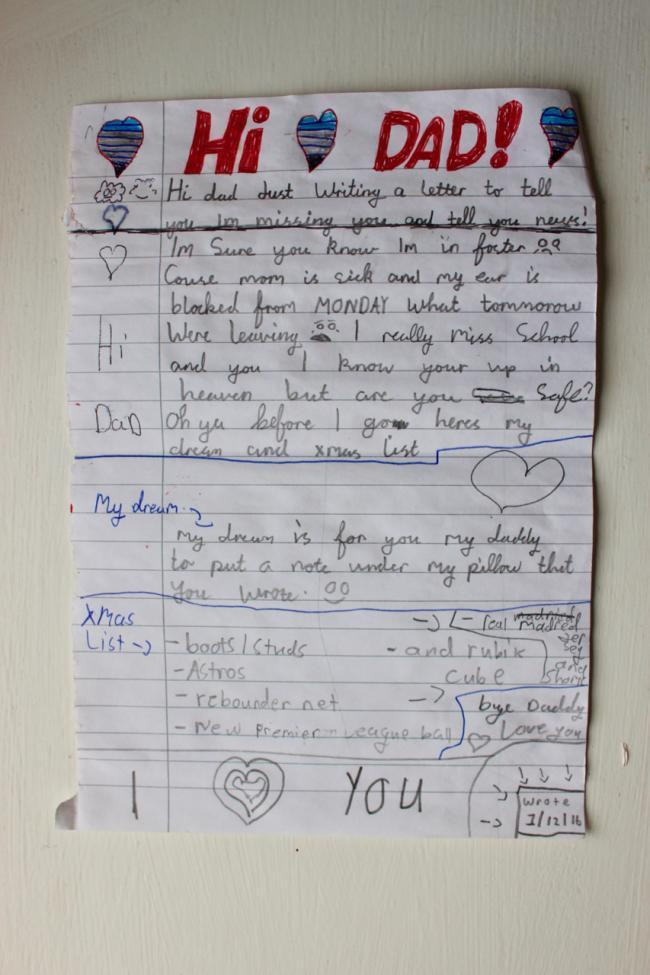 Hi DAD!
Hi dad Just Writing a letter to tell
you Im missing you and tell you news!
Im Sure you know Im in foster
Couse mom is sick and my ear is
blocked from MONDAY What tommorow
Were leaving I really miss School
Hi
and you I know your up in
heaven but are you Safe?
DaD
Oh ya before I go heres my
dream and xmas list
My dream
my dream is for you my daddy
to put a note under my pillow that
you wrote.
Xmas
List
- boots/studs
- Astros
- rebounder net
- New Premier League ball
- real madried
jersey
and
Shorts
- and rubik
cube
bye Daddy
Love you
I YOU
wrote
1/12/16